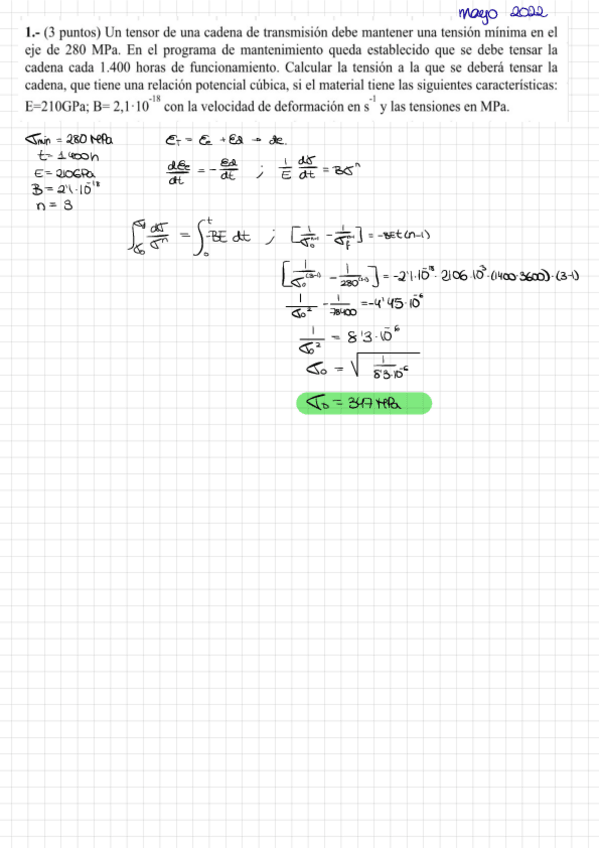 mayo 2022
1.- (3 puntos) Un tensor de una cadena de transmisión debe mantener una tensión mínima en el
eje de 280 MPa. En el programa de mantenimiento queda establecido que se debe tensar la
cadena cada 1.400 horas de funcionamiento. Calcular la tensión a la que se deberá tensar la
cadena, que tiene una relación potencial cúbica, si el material tiene las siguientes características:
E=210GPa; B= 2,1·10⁻¹⁸ con la velocidad de deformación en s⁻¹ y las tensiones en MPa.
σmin = 280 MPa
t = 1400h
E = 210GPa
B = 2'1·10⁻¹⁸
n = 3
ε_T = ε_e + ε_d → de.
dε_e/dt = - ε_d/dt ; 1/E dσ/dt = Bσⁿ
∫ dσ/σⁿ = ∫₀ᵗ -BE dt ; [1/σ₀ⁿ⁻¹ - 1/σ_fⁿ⁻¹] = -BEt(n-1)
[1/σ₀⁽³⁻¹⁾ - 1/280⁽³⁻¹⁾] = -2'1·10⁻¹⁸ · 2106·10³·(1400·3600)·(3-1)
1/σ₀² - 1/78400 = -4'45·10⁻⁶
1/σ₀² = 8'3·10⁻⁶
σ₀ = √(1/8'3·10⁻⁶)
σ₀ = 347 MPa